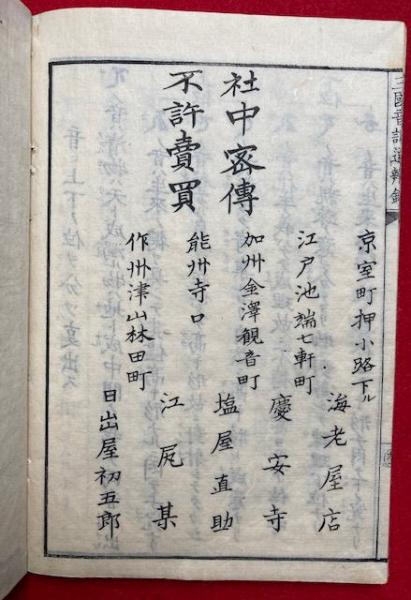 三國音
社中密傳
不許賣買
京室町押小路下ル
海老屋店
江戸池端七軒町
慶安寺
加州金澤観音町
塩屋直助
能州寺口
江尻某
作州津山林田町
日出屋初五郎